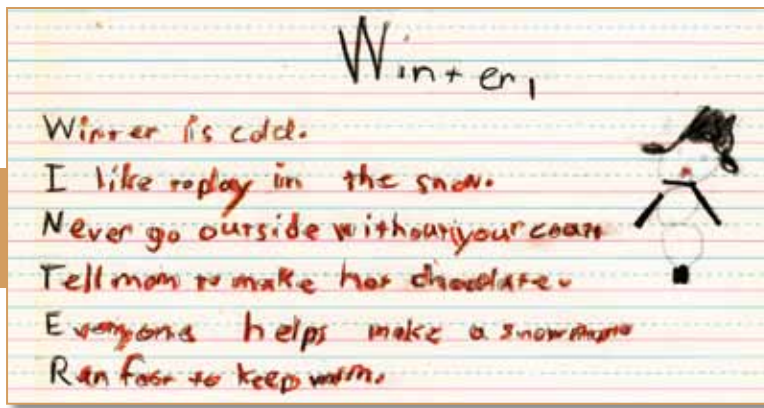 Winter,
Winter is cold.
I like to play in the snow.
Never go outside without your coat
Tell mom to make hot chocolate.
Everyone helps make a snowman
Run fast to keep warm.